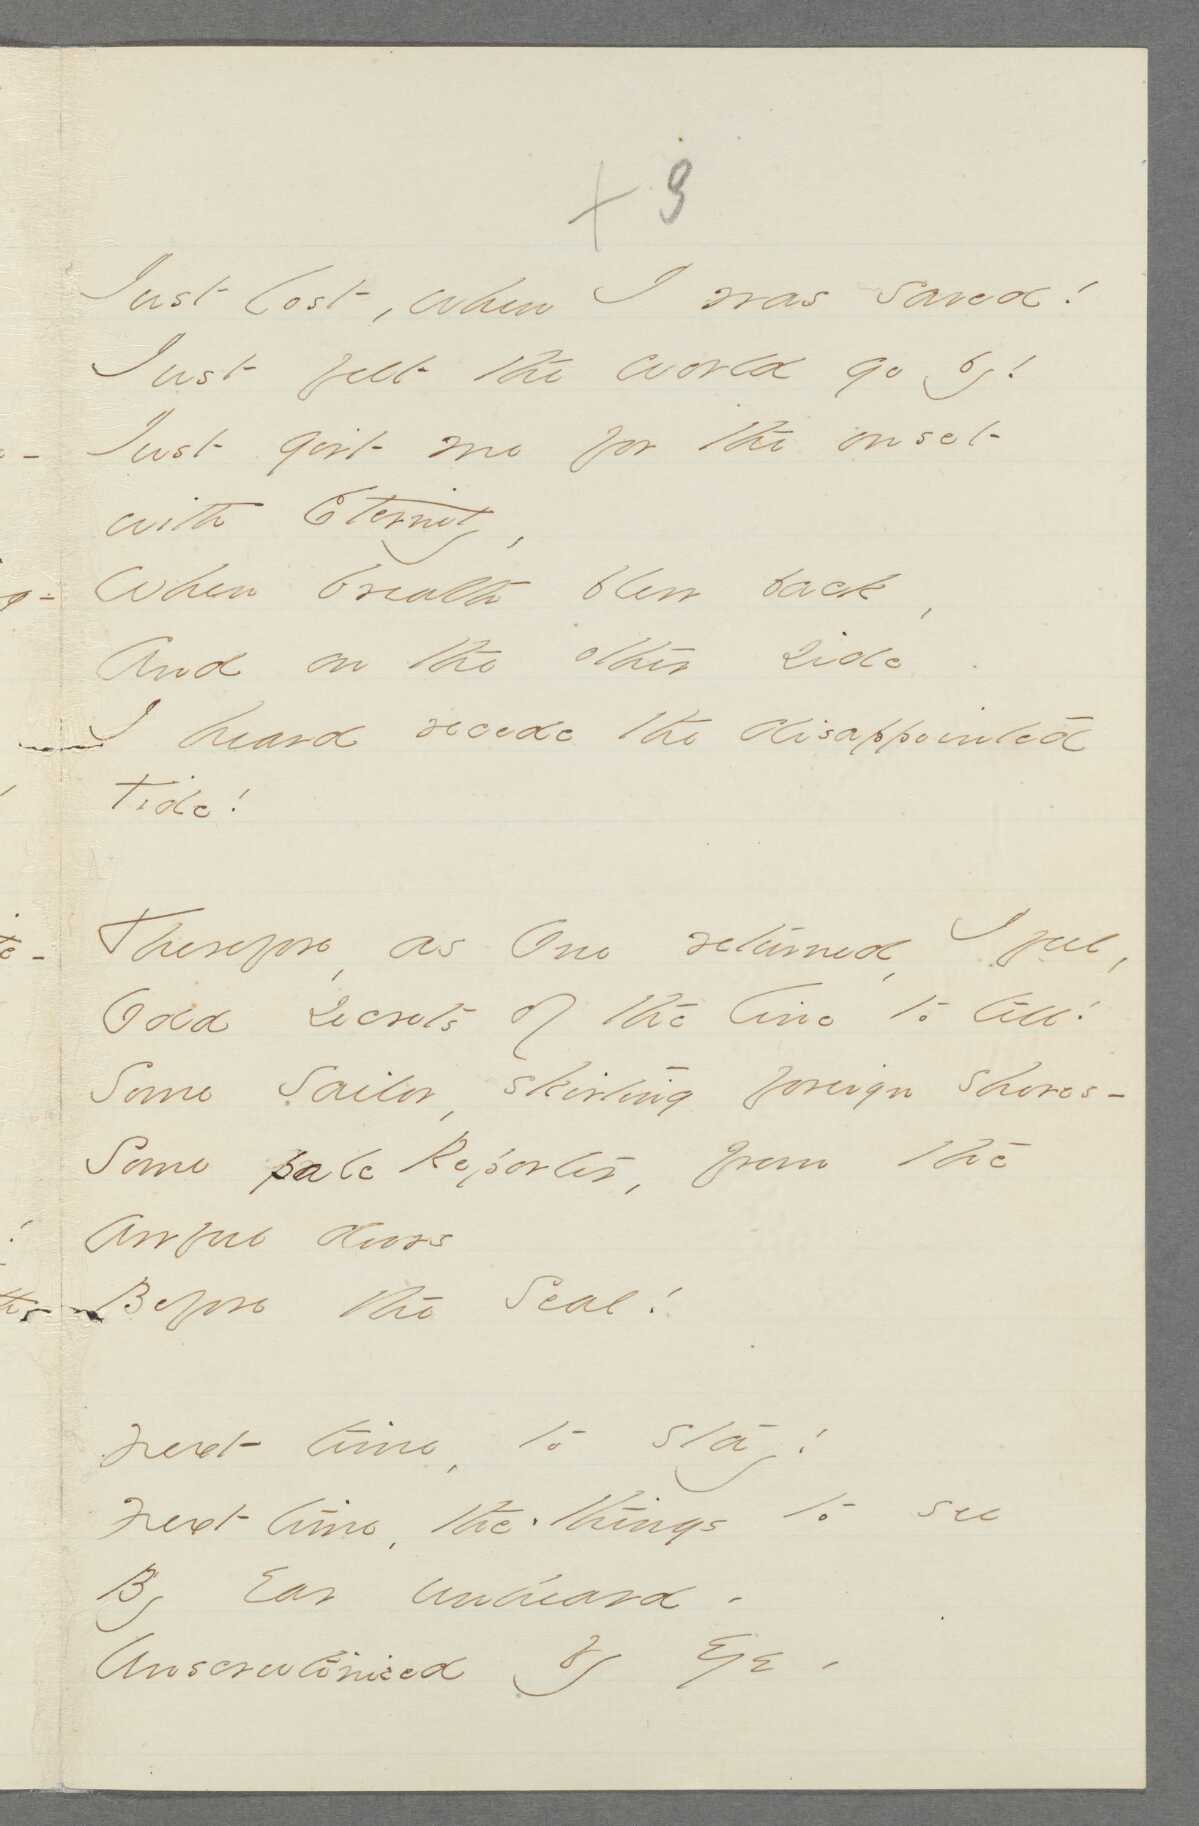 + 9
Just lost, when I was saved!
Just felt the world go by!
Just girt me for the onset
with Eternity,
When breath blew back,
And on the other side
I heard recede the disappointed
tide!
Therefore, as One returned, I feel,
Odd secrets of the line to tell!
Some Sailor, skirting foreign shores -
Some pale Reporter, from the
awful doors
Before the Seal!
Next time, to stay!
Next time, the things to see
By Ear unheard -
Unscrutinized by Eye -